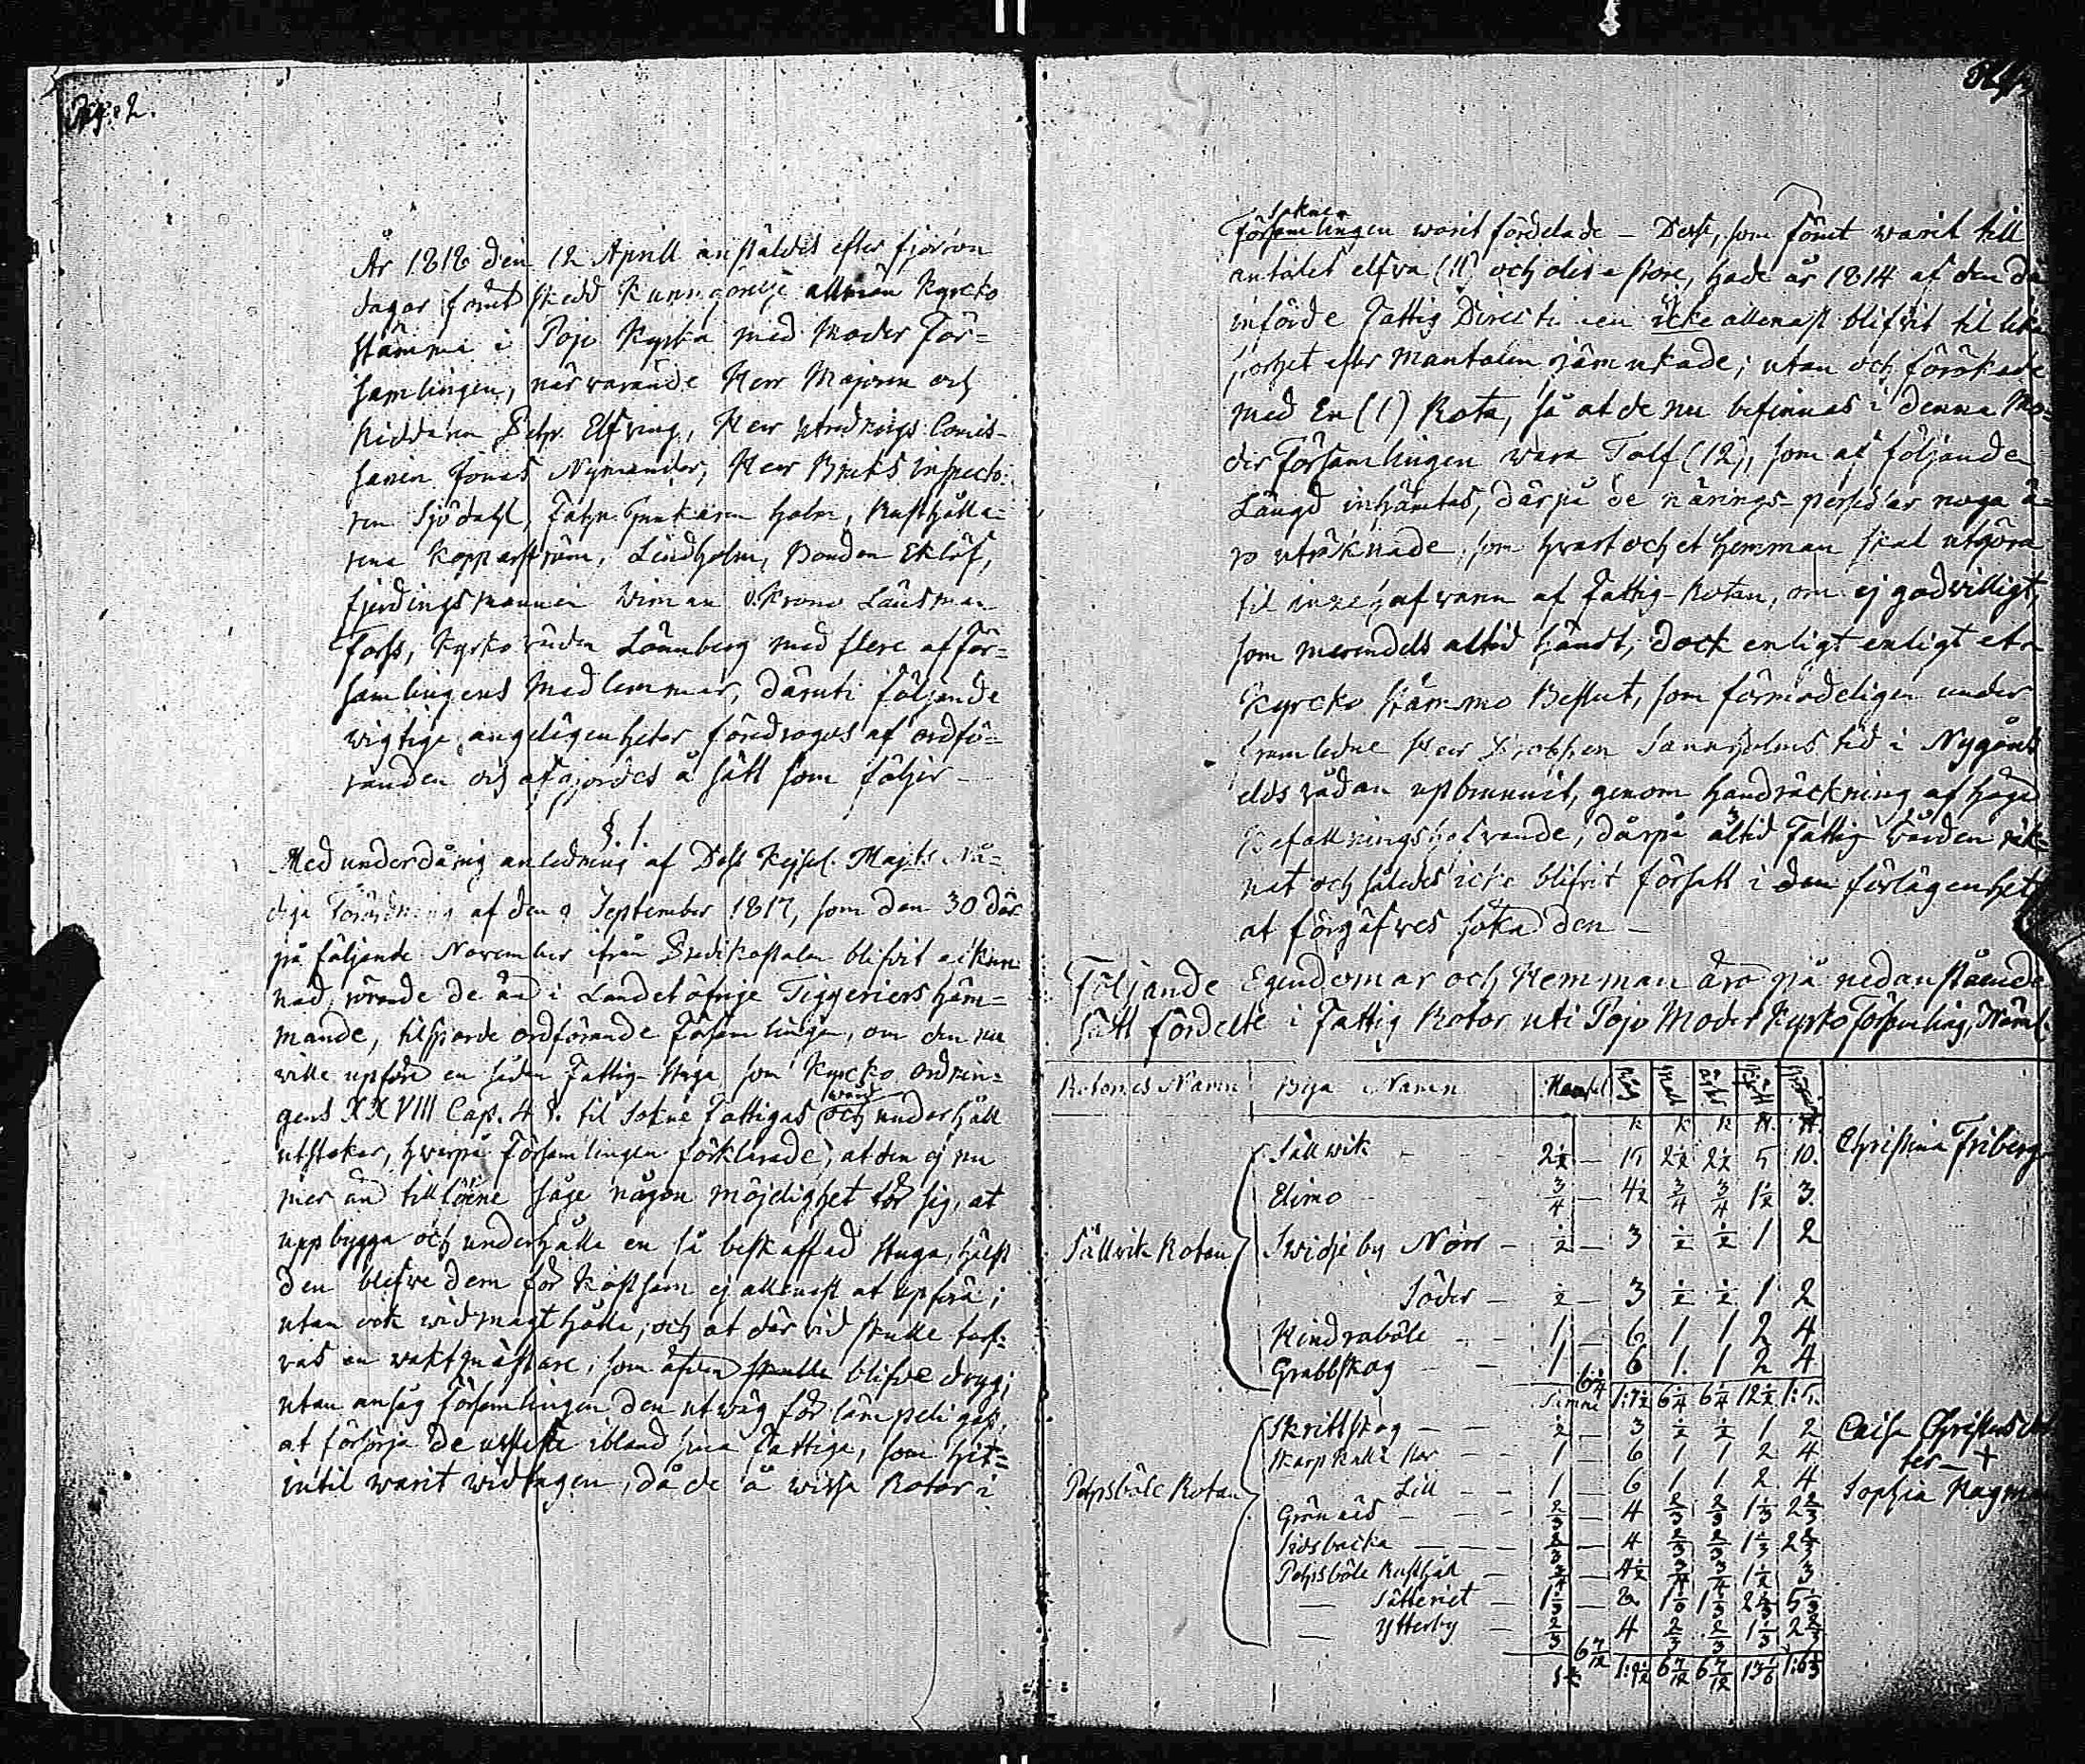 Pag: 2.
År 1818 den 12 Aprill anstäldes efter fjorton
dagar förut skedd Kunngörelse allmän Kyrcko
stämma i Pojo Kyrka med Moder För-
samlingen, närvarande Herr Majoren och
Riddaren Elfving, Herr Utrednings Comis-
sarien Jonas Nymander, Herr Bruks Inspecto-
ren Sjödahl, Holm, Rusthålla-
rena Kopparström, Lindholm, Bonden Eklöf,
fjerdingsmannen Wiman v. Krono Länsman
Forss, Kyrko Lönnberg med flere af För-
samlingens Medlemmar, däruti följande
wigtige angelägenheter föredrogos af ordfö-
randen och afgjordes å sätt som följer
§. 1.
Med underdånig anledning af Dess Kejserl. Majts Nå-
diga Förordning af den 9 September 1817, som den 30 där
på följande November ifrån Predikostolen blifvit
nad, rörande de än i Landet öfrige Tiggeriers häm-
mande, tilsporde ordförande Församlingen, om den nu
wille upföra en sådan Fattig-Stuga som Kyrcko ordnin-
gens XXVIII Cap. 4 §. til Sokne Fattigas wård och underhåll
utstakar, hwarpå Församlingen förklarade, at den ej nu
mer än tillförne såge någon möjelighet för sig, at
uppbygga och underhålla en så beskaffad Stuga, hälst
den blefve dem för kostsam ej allenast at upföra,
utan ock widmagthålla, och at där vid skulle
vas en waktmästare, som äfven skulle blifve dryg;
utan ansåg Församlingen den utwäg för lämpeligast,
at försörja de usleste ibland sina Fattiga, som hit-
intil warit widtagen, då de å wissa Rotar i
Soknen
Församlingen warit fördelade – Desse, som förut warit till
antalet elfva (11) och olika store, hade år 1814 af den då
införde Fattig Direction icke allenast blifvit til lika
storhet efter Mantalen jämnkade; utan och förökade
med En (1) Rota, så at de nu befinnas i denna Mo-
der Församlingen wara Tolf (12), som af följande
Längd inhämtas, därpå de närings-persedlar noga ä-
ro uträknade, som hvart och et hemman skal utgöra
til af wann af Fattig-Rotan, om ej godwilligt,
som merendels altid händt, dock enligt enligt ett
Kyrcko stämmo Beslut, som förmodeligen under
framledne Herr Prosten Sannholms tid i Nygårds
elds vådan upbrunnit, genom handräckning af höga
Befallningshafvande, därpå altid Fattig Vården räk-
nat och således icke blifvit försatt i den förlägenhet
at förgäfves söka den –
Följande Egendomar och Hemman äro på nedanstående
sätt fördelte i Fattig Rotor uti Pojo Moder Kyrko Församling, Näml.
Rotornes Namn Bya Namn Mantal
Sällvik – 2½ – 15 2½ 2½ 5 10. Christina Friberg
Elimo – ¾ – 4½ ¾ ¾ 1½ 3.
Sällvik Rotan Swidjeby Norr – ½ – 3 ½ ½ 1 2
Söder – ½ – 3 ½ ½ 1 2
Kindrabôle – 1 – 6 1 1 2 4
Grabbskog – 1 – 6 1. 1 2 4
Summa 6¼ 1:7½ 6¼ 6¼ 12½ 1:5.
Skrittskog – ½ – 3 ½ ½ 1 2 Caisa Christersdot
Skarpkulla Stor – 1 – 6 1 1 2 4 ter – +
Pehrsböle Rotan Lill – 1 – 6 1 1 2 4 Sophia Hagman
Grönnäs – ⅔ – 4 ⅔ ⅔ 1⅓ 2⅔
Sidsbacka – ⅔ – 4 ⅔ ⅔ 1⅓ 2⅔
Pehrsböle Rusthåll – ¾ – 4½ ¾ ¾ 1½ 3
– Säteriet – 1⅓ – 8 1⅓ 1⅓ 2⅔ 5⅓
– Ytterby – ⅔ 4 ⅔ ⅔ 1⅓ 2⅔
6 7/12 1:9½ 6 7/12 6 7/12 13 1/6 1:6⅓